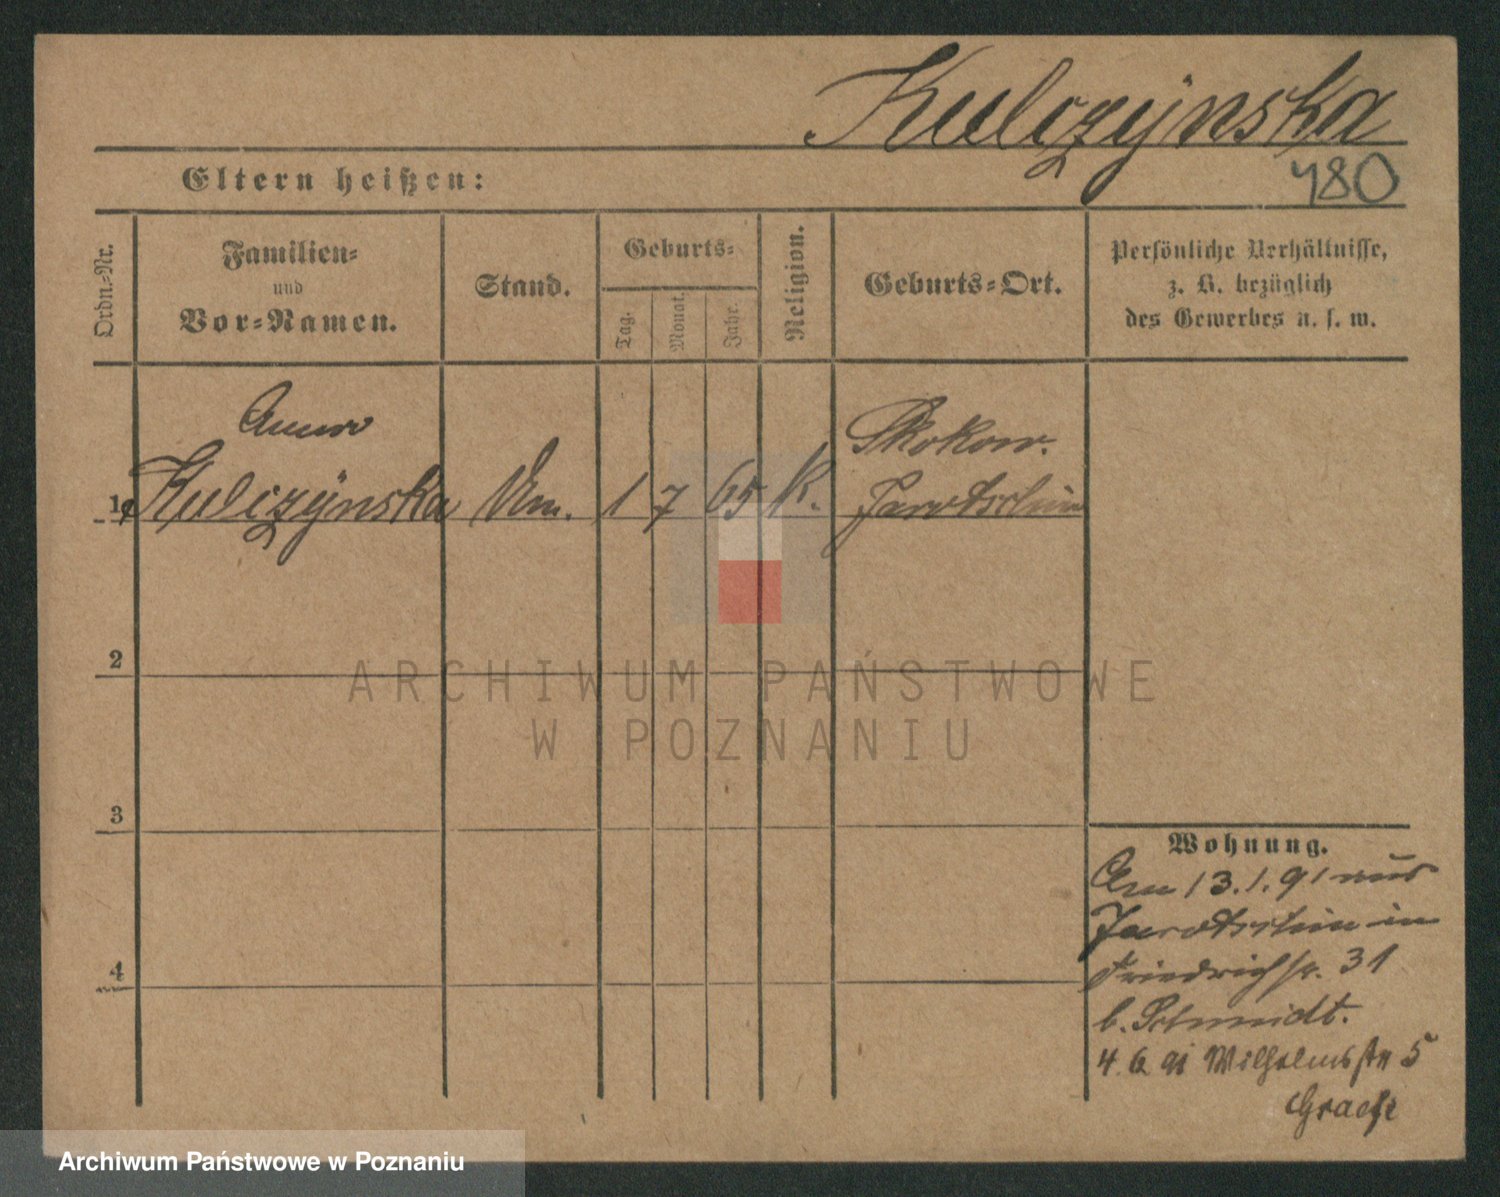 Kulczyńska
480
Eltern heißen:
Ordn.-Nr.
Familien-
und
Vor-Namen.
Stand.
Geburts-
Tag.
Monat.
Jahr.
Religion.
Geburts-Ort.
Persönliche Verhältnisse,
z. B. bezüglich
des Gewerbes u. s. w.
Anna
1 Kulczyńska 1 7 65 K.
Skokow.
Jarotschin
2
3
4
Wohnung.
Am 13.1.91 aus
Jarotschin in
Friedrichstr. 31
b. Schmidt.
4. 6 91 Wilhelmsstr 5
Graefe
ARCHIWUM PAŃSTWOWE
W POZNANIU
Archiwum Państwowe w Poznaniu